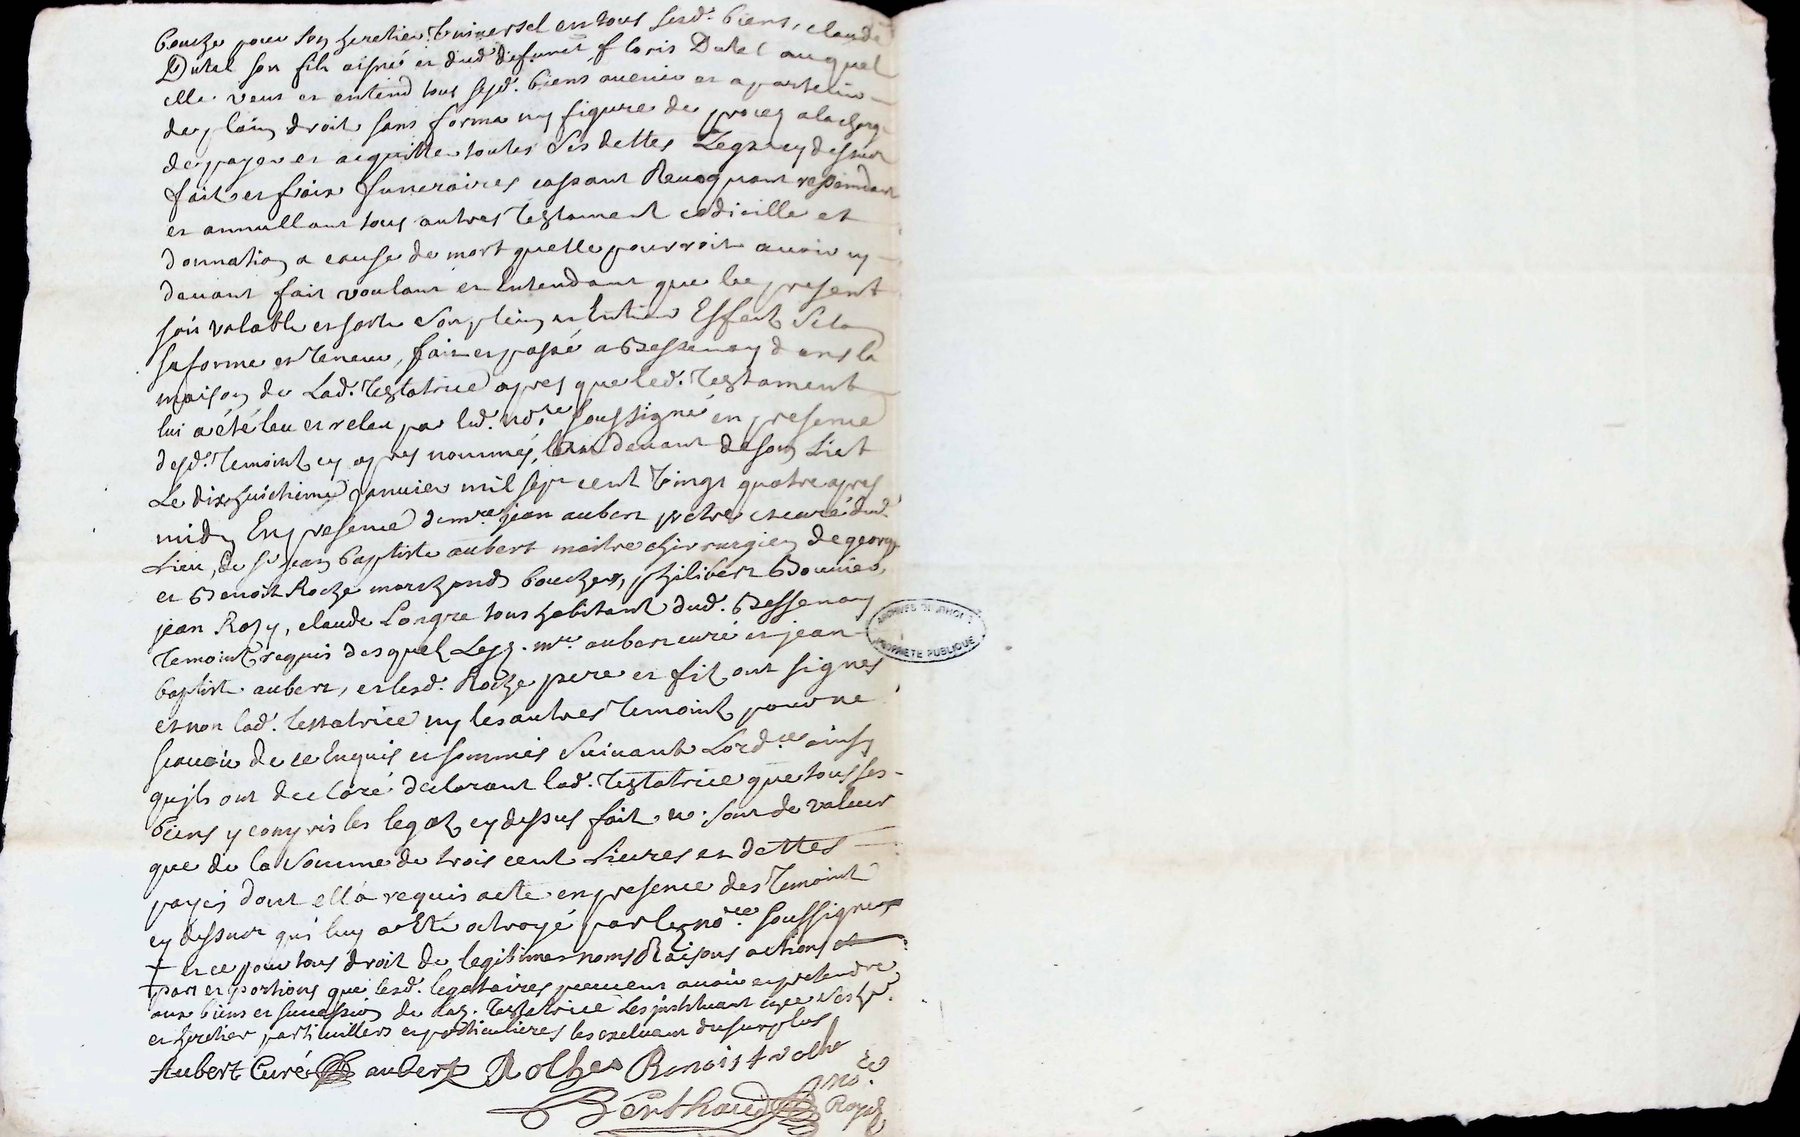 bouche pour son heretier Universel en tous sesd. biens, claude
Dutel son fils aisné et dud. defunct floris Dutel auquel
elle veut et entend tous sesd. biens avenir et apartenir
de plain droit sans forme ny figure de procez a la charge
de payer et acquitter toutes ses dettes Legz cy dessus
fait et fraix funeraires cassant Revoquant
et annullant tous autres Testament codicille et
donnation a cause de mort quelle pourroit avoir cy
devant fait voulant et Entendant que le present
soit valable et sorte son plein et Entier Effect selon
sa forme et Teneur, fait et passé a Bessenay dans la
maison de Lad. Testatrice apres que led. Testament
lui a été leu et releu par led. nore soussigné en presence
desd. Temoint cy apres nommés, au devant de son Lict
Le dix huictieme janvier mil sept cent vingt quatre apres
midy En presence de mre jean aubert pretre et curé dud.
Lieu, de sr jean baptiste aubert maitre chirurgien
et Benoit Roche marchands bouchers, philibert Bonnier
jean Rosy, claude Longre tous habitant dud. Bessenay
Temoint requis desquel Lesd. mre aubert curé et jean
baptiste aubert, et lesd. Roche pere et fils ont signes
et non lad. Testatrice ny les autres Temoint pour ne
scavoir de ce Enquis et sommés suivant Lordce ainsy
quils ont declaré declarant lad. Testatrice que tous ses
biens y compris les legat cy dessus fait ne sont de valeur
que de la somme de trois cent Livres et dettes
payés dont ell a requis acte en presence des Temoint
cy dessus qui luy a été octroyé par le nore soussigné
+ et ce pour tous droit de legitimes noms Raisons actions
part et portions que lesd. legataires peuvent avoir et pretendre
aux biens et succession de lad. Testatrice Les instituant
et heretier particulliers et particulieres les excluant du surplus
Aubert Curé aubert Rolhe Benoist roche
Berthaud nore
Royal
ARCHIVES DU RHONE
PROPRIETE PUBLIQUE